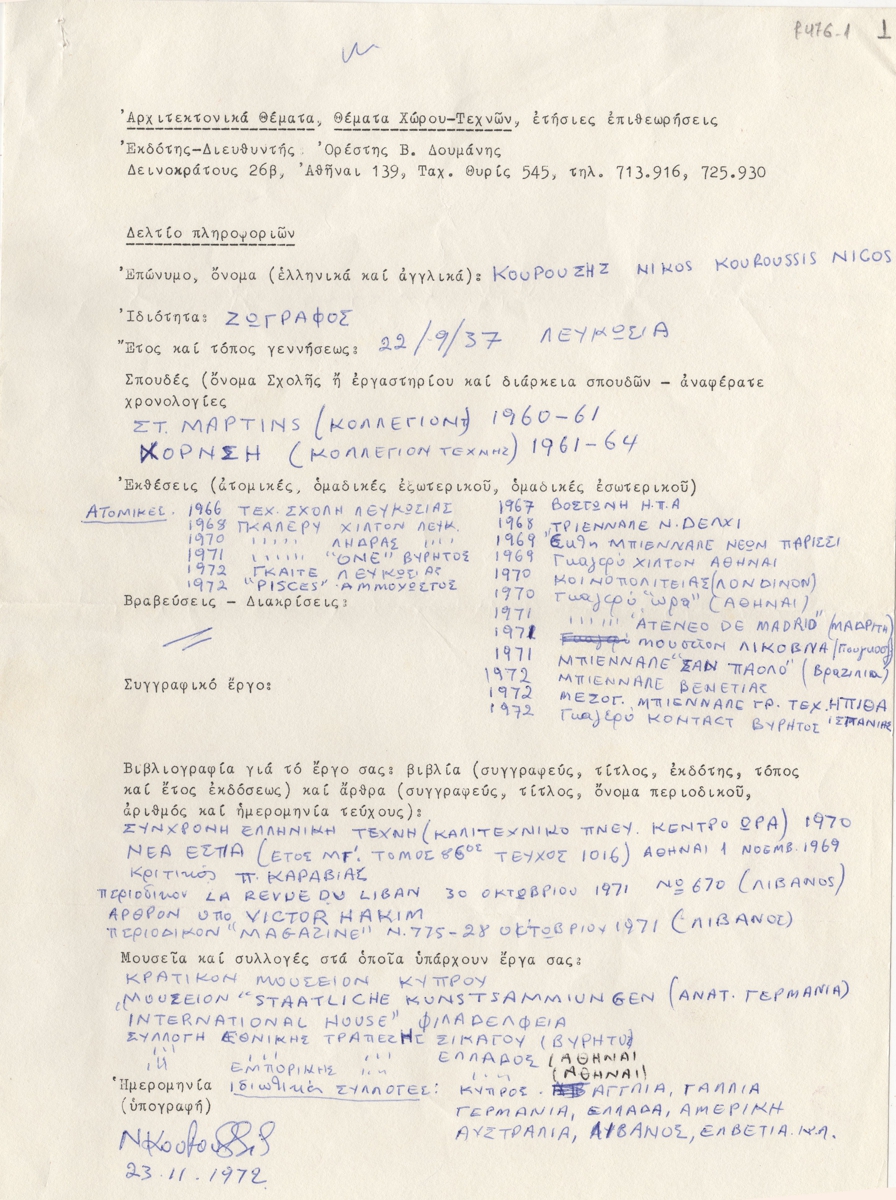 P.476-1 1
Ἀρχιτεκτονικά Θέματα, Θέματα Χώρου-Τεχνῶν, ἐτήσιες ἐπιθεωρήσεις
Ἐκδότης-Διευθυντής Ὀρέστης Β. Δουμάνης
Δεινοκράτους 26β, Ἀθῆναι 139, Ταχ. Θυρίς 545, τηλ. 713.916, 725.930
Δελτίο πληροφοριῶν
Ἐπώνυμο, ὄνομα (ἑλληνικά καί ἀγγλικά): ΚΟΥΡΟΥΣΗΣ ΝΙΚΟΣ KOUROUSSIS NICOS
Ἰδιότητα: ΖΩΓΡΑΦΟΣ
Ἔτος καί τόπος γεννήσεως: 22/9/37 ΛΕΥΚΩΣΙΑ
Σπουδές (ὄνομα Σχολῆς ἤ ἐργαστηρίου καί διάρκεια σπουδῶν - ἀναφέρατε
χρονολογίες
ΣΤ. ΜΑΡΤΙΝS (ΚΟΛΛΕΓΙΟΝ) 1960-61
ΧΟΡΝΣΗ (ΚΟΛΛΕΓΙΟΝ ΤΕΧΝΗΣ) 1961-64
Ἐκθέσεις (ἀτομικές, ὁμαδικές ἐξωτερικοῦ, ὁμαδικές ἐσωτερικοῦ)
ΑΤΟΜΙΚΕΣ. 1966 ΤΕΧ. ΣΧΟΛΗ ΛΕΥΚΩΣΙΑΣ
1968 ΓΚΑΛΕΡΥ ΧΙΛΤΟΝ ΛΕΥΚ.
1970 ''''' ΛΗΔΡΑΣ '''
1971 ''''' "ONE" ΒΥΡΗΤΟΣ
1972 ΓΚΑΙΤΕ ΛΕΥΚΩΣΙΑΣ
1972 "PISCES" ΑΜΜΟΧΩΣΤΟΣ
1967 ΒΟΣΤΩΝΗ Η.Π.Α
1968 ΤΡΙΕΝΝΑΛΕ Ν. ΔΕΛΧΙ
1969 Εκθη ΜΠΙΕΝΝΑΛΕ ΝΕΩΝ ΠΑΡΙΣΣΙ
1969 Γκαλερύ ΧΙΛΤΟΝ ΑΘΗΝΑΙ
1970 ΚΟΙΝΟΠΟΛΙΤΕΙΑΣ (ΛΟΝΔΙΝΟΝ)
1970 Γκαλερύ "ώρα" (ΑΘΗΝΑΙ)
1971 '''''' "ATENEO DE MADRID" (ΜΑΔΡΙΤΗ)
1971 ΜΟΥΣΕΙΟΝ ΛΙΚΟΒΝΑ
1971 ΜΠΙΕΝΝΑΛΕ "ΣΑΝ ΠΑΟΛΟ" (Βραζιλία)
1972 ΜΠΙΕΝΝΑΛΕ ΒΕΝΕΤΙΑΣ
1972 ΜΕΣΟΓ. ΜΠΙΕΝΝΑΛΕ ΓΡ. ΤΕΧ. ΙΣΠΑΝΙΑΣ
1972 Γκαλερύ ΚΟΝΤΑCΤ ΒΥΡΗΤΟΣ
Βραβεύσεις - Διακρίσεις:
Συγγραφικό ἔργο:
Βιβλιογραφία γιά τό ἔργο σας: βιβλία (συγγραφεύς, τίτλος, ἐκδότης, τόπος
καί ἔτος ἐκδόσεως) καί ἄρθρα (συγγραφεύς, τίτλος, ὄνομα περιοδικοῦ,
ἀριθμός καί ἡμερομηνία τεύχους):
ΣΥΝΧΡΟΝΗ ΕΛΛΗΝΙΚΗ ΤΕΧΝΗ (ΚΑΛΙΤΕΧΝΙΚΟ ΠΝΕΥ. ΚΕΝΤΡΟ ΩΡΑ) 1970
ΝΕΑ ΕΣΤΙΑ (ΕΤΟΣ ΜΓ'. ΤΟΜΟΣ 86ΟΣ ΤΕΥΧΟΣ 1016) ΑΘΗΝΑΙ 1 ΝΟΕΜΒ. 1969
Κριτικός Π. ΚΑΡΑΒΙΑΣ
περιοδικον LA REVUE DU LIBAN 30 ΟΚΤΩΒΡΙΟΥ 1971 Nο 670 (ΛΙΒΑΝΟΣ)
ΑΡΘΡΟΝ ΥΠΟ VICTOR HAKIM
ΠΕΡΙΟΔΙΚΟΝ "MAGAZINE" N.775-28 ΟΚΤΩΒΡΙΟΥ 1971 (ΛΙΒΑΝΟΣ)
Μουσεῖα καί συλλογές στά ὁποῖα ὑπάρχουν ἔργα σας:
ΚΡΑΤΙΚΟΝ ΜΟΥΣΕΙΟΝ ΚΥΠΡΟΥ
ΜΟΥΣΕΙΟΝ "STAATLICHE KUNSTSAMMIUNGEN (ΑΝΑΤ. ΓΕΡΜΑΝΙΑ)
"INTERNATIONAL HOUSE" ΦΙΛΑΔΕΛΦΕΙΑ
ΣΥΛΛΟΓΗ ΕΘΝΙΚΗΣ ΤΡΑΠΕΖΗΣ ΣΙΚΑΓΟΥ (ΒΥΡΗΤΟ)
'''' '''' '''' ΕΛΛΑΔΟΣ (ΑΘΗΝΑΙ
ΕΜΠΟΡΙΚΗΣ '''' '''' (ΑΘΗΝΑΙ)
Ἡμερομηνία
(ὑπογραφή)
Ιδιωτικαι ΣΥΛΛΟΓΕΣ: ΚΥΠΡΟΣ ΑΓΓΛΙΑ, ΓΑΛΛΙΑ
ΓΕΡΜΑΝΙΑ, ΕΛΛΑΔΑ, ΑΜΕΡΙΚΗ
ΑΥΣΤΡΑΛΙΑ, ΛΙΒΑΝΟΣ, ΕΛΒΕΤΙΑ. Κ.Λ.
23.11.1972